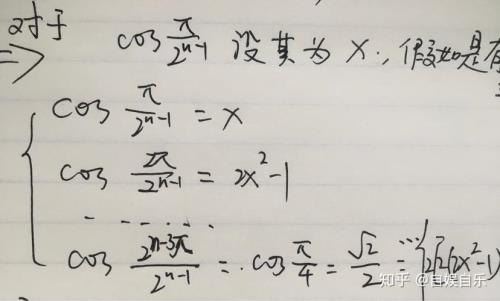 对于
⇒ cos π/2^n-1 设其为 x., 假如是有
{ cos π/2^n-1 = x
cos 2π/2^n-1 = 2x^2-1
- - - - . . . .
cos 2^n-3π/2^n-1 = cos π/4 = √2/2 =
知乎 @自娱自乐